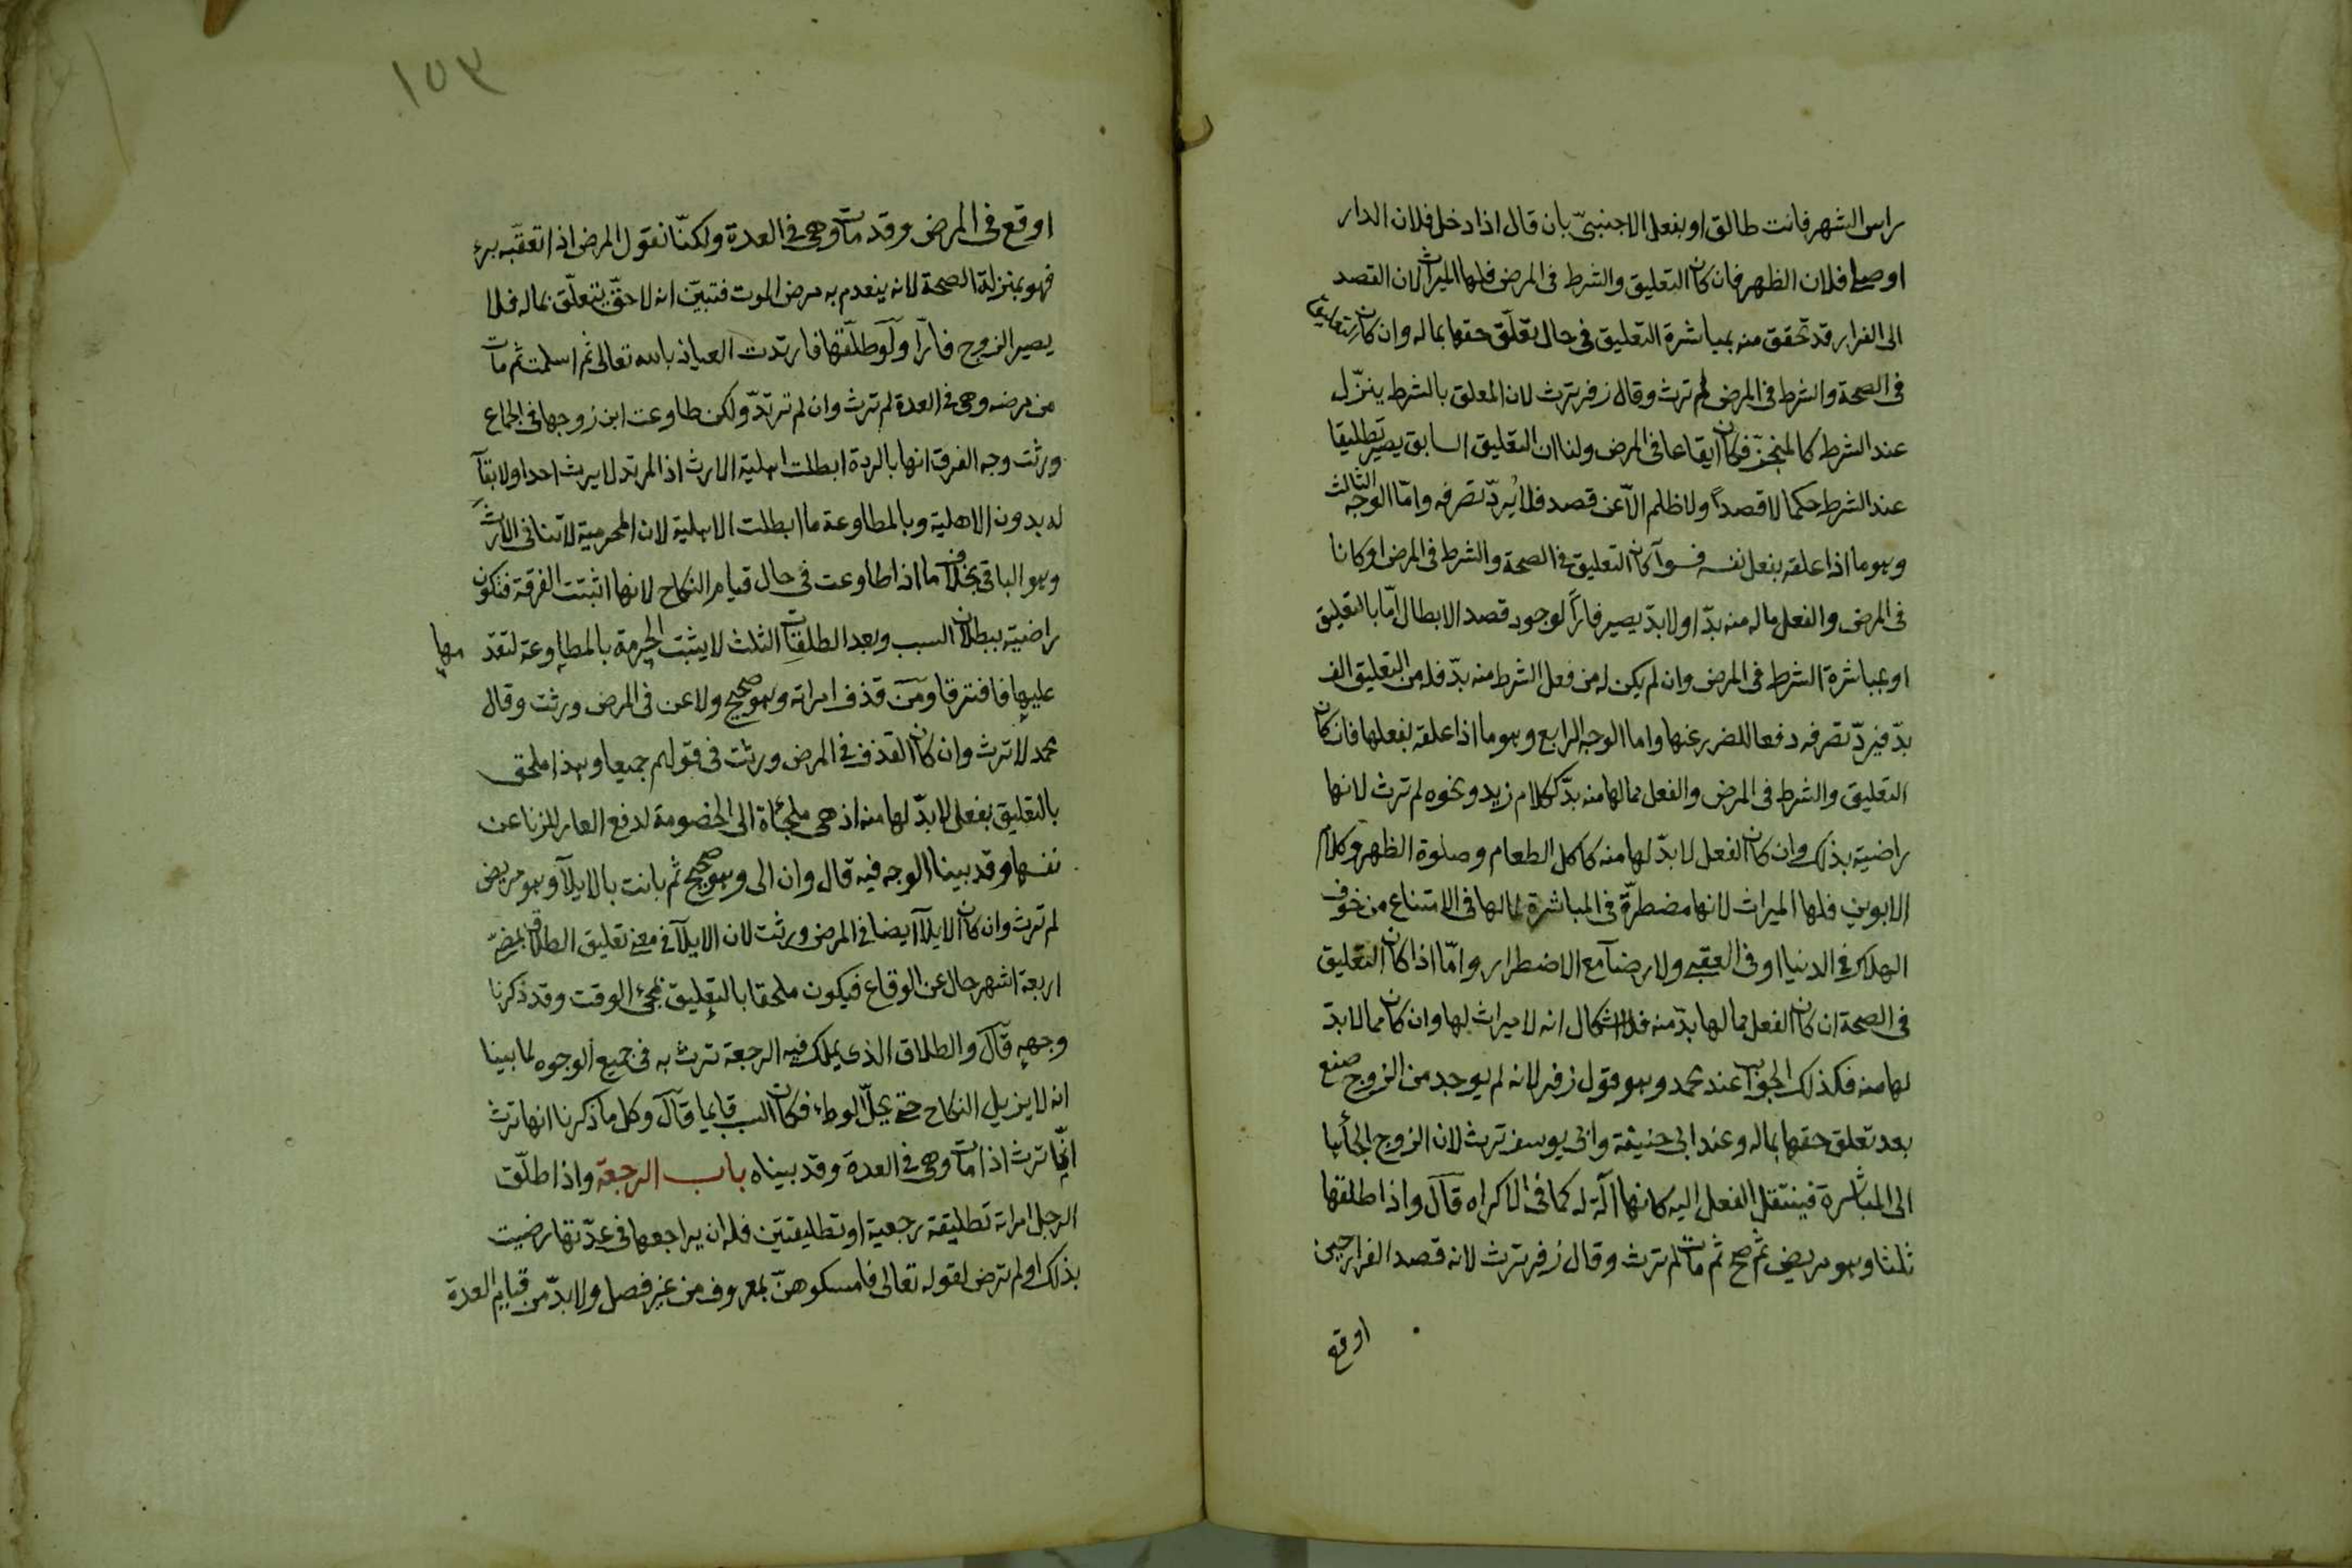 راس الشهر فانت طالق او بفعل الاجنبيّ بان قال اذا دخل فلان الدار
او صلى فلان الظهر فان كان التعليق والشرط فى المرض فلها الميراث لان القصد
الى الفرار قد تحقق منه بمباشرة التعليق فى حال تعلّق حقها بماله وان كان التعليق
فى الصحة والشرط فى المرض لم ترث وقال زفر ترث لان المعلق بالشرط ينزّل
عند الشرط كالمنجّز فكان ايقاعا فى المرض ولنا ان التعليق السابق يصير تطليقا
عند الشرط حكما لا قصداً ولا ظلم الّا عن قصد فلا يُردّ تصرفه وامّا الوجه الثالث
وهو ما اذا علقه بفعل نفسه فسوآ كان التعليق فى الصحة والشرط فى المرض او كانا
فى المرض والفعل ما له منه بدّ او لا بدّ يصير فارّاً لوجود قصد الابطال امّا بالتعليق
او بمباشرة الشرط فى المرض وان لم يكن له من فعل الشرط منه بدّ فله من التعليق الف
بدّ فيردّ تصرفه دفعا للضرر عنها واما الوجه الرابع وهو ما اذا علقه بفعلها فان كان
التعليق والشرط فى المرض والفعل مما لها منه بدّ ككلام زيد ونحوه لم ترث لانها
راضية بذلك وان كان الفعل لا بدّ لها منه كاكل الطعام وصلوة الظهر وكلام
الابوين فلها الميراث لانها مضطرّة فى المباشرة لما لها فى الامتناع من خوف
الهلاك فى الدنيا او فى العقبى ولا رضآ مع الاضطرار وامّا اذا كان التعليق
فى الصحة ان كان الفعل مما لها بدّ منه فلا اشكال انه لا ميراث لها وان كان مما لا بدّ
لها منه فكذلك الجواب عند محمد وهو قول زفر لانه لم يوجد من الزوج صنع
بعد تعلق حقها بماله وعند ابى حنيفة وابى يوسف ترث لان الزوج الجأها
الى المباشرة فينتقل الفعل اليه كانها آلة له كما فى الاكراه قآل واذا طلقها
ثلثا وهو مريض ثم صح ثم مات لم ترث وقال زفر ترث لانه قصد الفرار حين
اوقع
١٥٣
اوقع فى المرض وقد مات وهى فى العدة ولكنّا نقول المرض اذا تعقّبه برء
فهو بمنزلة الصحة لانه ينعدم به مرض الموت فتبيّن انه لا حقّ يتعلّق بماله فلا
يصير الزوج فارّا ولو طلّقها فارتدت العياذ بالله تعالى ثم اسلمت ثم مات
من مرضه وهى فى العدة لم ترث وان لم ترتدّ ولكن طاوعت ابن زوجها فى الجماع
ورثت وجه الفرق انها بالردة ابطلت اهلية الارث اذ المرتد لا يرث احدا ولا بقآ
له بدون الاهلية وبالمطاوعة ما ابطلت الاهلية لان المحرمية لا تنافى الارث
وهو الباقى بخلاف ما اذا طاوعت فى حال قيام النكاح لانها اثبتت الفرقة فتكون
راضية ببطلان السبب وبعد الطلقات الثلث لا يثبت الحرمة بالمطاوعة لتقد مها
عليها فافترقا ومن قذف امراته وهو صحيح ولاعن فى المرض ورثت وقال
محمد لا ترث وان كان القذف فى المرض ورثت فى قولهم جميعا وهذا ملحق
بالتعليق بفعل لا بدّ لها منه اذ هى ملجأة الى الخصومة لدفع العار للزنا عن
نفسها وقد بينا الوجه فيه قال وان الى وهو صحيح ثم بانت بالايلآ وهو مريض
لم ترث وان كان الايلآ ايضا فى المرض ورثت لان الايلآ فى معنى تعليق الطلاق بمضىّ
اربعة اشهر خال عن الوقاع فيكون ملحقا بالتعليق بمجئ الوقت وقد ذكرنا
وجهه قآل والطلاق الذى يملك فيه الرجعة ترث به فى جميع الوجوه لما بينا
انه لا يزيل النكاح حتى يحلّ الوطء فكان السبب قايما قآل وكل ما ذكرنا انها ترث
انّما ترث اذا مات وهى فى العدة وقد بيناه باب الرجعة واذا طلّق
الرجل امراته تطليقة رجعية او تطليقتين فله ان يراجعها فى عدّتها رضيت
بذلك او لم ترض لقوله تعالى فامسكوهنّ بمعروف من غير فصل ولا بدّ من قيام العدة